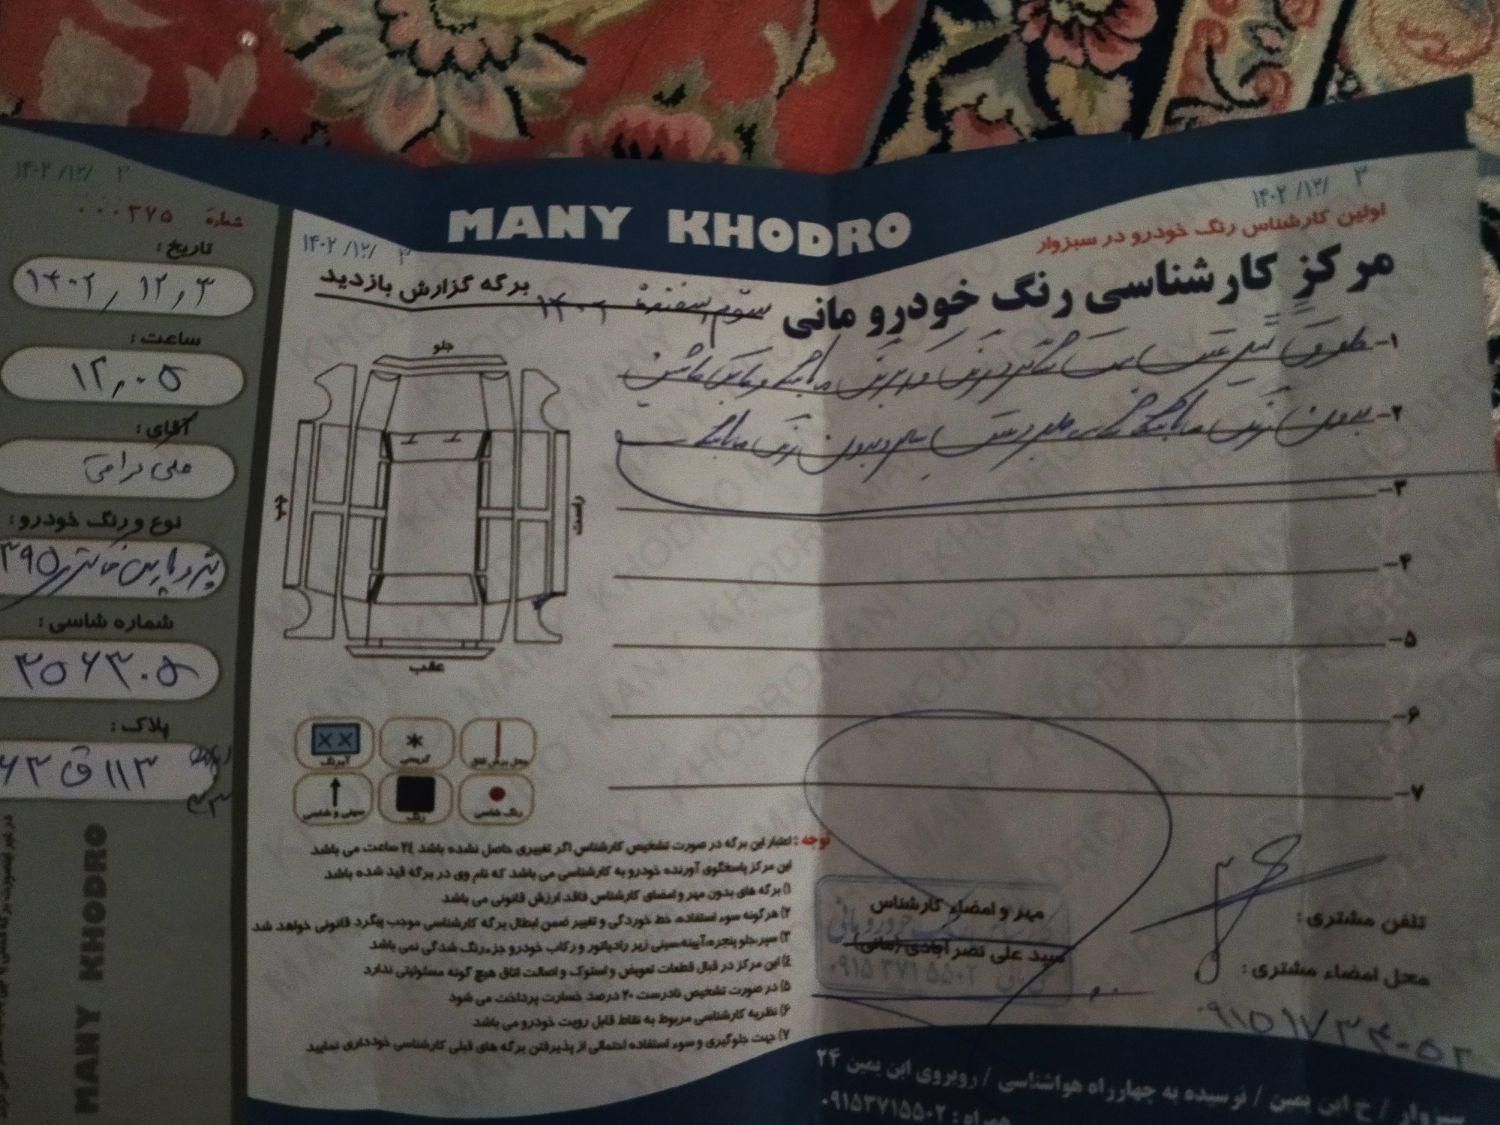 MANY KHODRO
۱۴۰۲/۱۲/ ۳
اولین کارشناس رنگ خودرو در سبزوار
مرکز کارشناسی رنگ خودرو مانی
۱۴۰۲/۱۲/ ۳
برگه گزارش بازدید
سوم اسفند ۱۴۰۲
۱-
۲- بدون رنگ
۳-
۴-
۵-
۶-
۷-
جلو
راست
چپ
عقب
محل برش اتاق
گریسی
آبرنگ
رنگ شاسی
رنگ
سینی و شاسی
توجه : اعتبار این برگه در صورت تشخیص کارشناس اگر تغییری حاصل نشده باشد ۲۴ ساعت می باشد
این مرکز پاسخگوی آورنده خودرو به کارشناسی می باشد که نام وی در برگه قید شده باشد
۱) برگه های بدون مهر و امضای کارشناس فاقد ارزش قانونی می باشد
۲) هرگونه سوء استفاده، خط خوردگی و تغییر ضمن ابطال برگه کارشناسی موجب پیگرد قانونی خواهد شد
۳) سپر،جلو پنجره،آیینه،سینی زیر رادیاتور و رکاب خودرو جزء رنگ شدگی نمی باشد
۴) این مرکز در قبال قطعات تعویض و استوک و اصالت اتاق هیچ گونه مسئولیتی ندارد
۵) در صورت تشخیص نادرست ۲۰ درصد خسارت پرداخت می شود
۶) نظریه کارشناسی مربوط به نقاط قابل رویت خودرو می باشد
۷) جهت جلوگیری و سوء استفاده احتمالی از پذیرفتن برگه های قبلی کارشناسی خودداری نمایید
مهر و امضاء کارشناس
سید علی نصر آبادی (مانی)
۰۹۱۵ ۳۷۱ ۵۵۰۲
تلفن مشتری :
محل امضاء مشتری :
۰۹۱۵۱۷۳۴۰۵۲
سبزوار / خ ابن یمین / نرسیده به چهارراه هواشناسی / روبروی ابن یمین ۲۴
همراه : ۰۹۱۵۳۷۱۵۵۰۲
۱۴۰۲/۱۲/ ۳
شماره ۰۰۰۳۷۵
تاریخ :
۱۴۰۲,۱۲,۳
ساعت :
۱۲,۰۵
آقای :
نوع و رنگ خودرو :
شماره شاسی :
۳۵۶۳۰۵
پلاک :
۶۳ ق ۱۱۳ ایران
MANY KHODRO